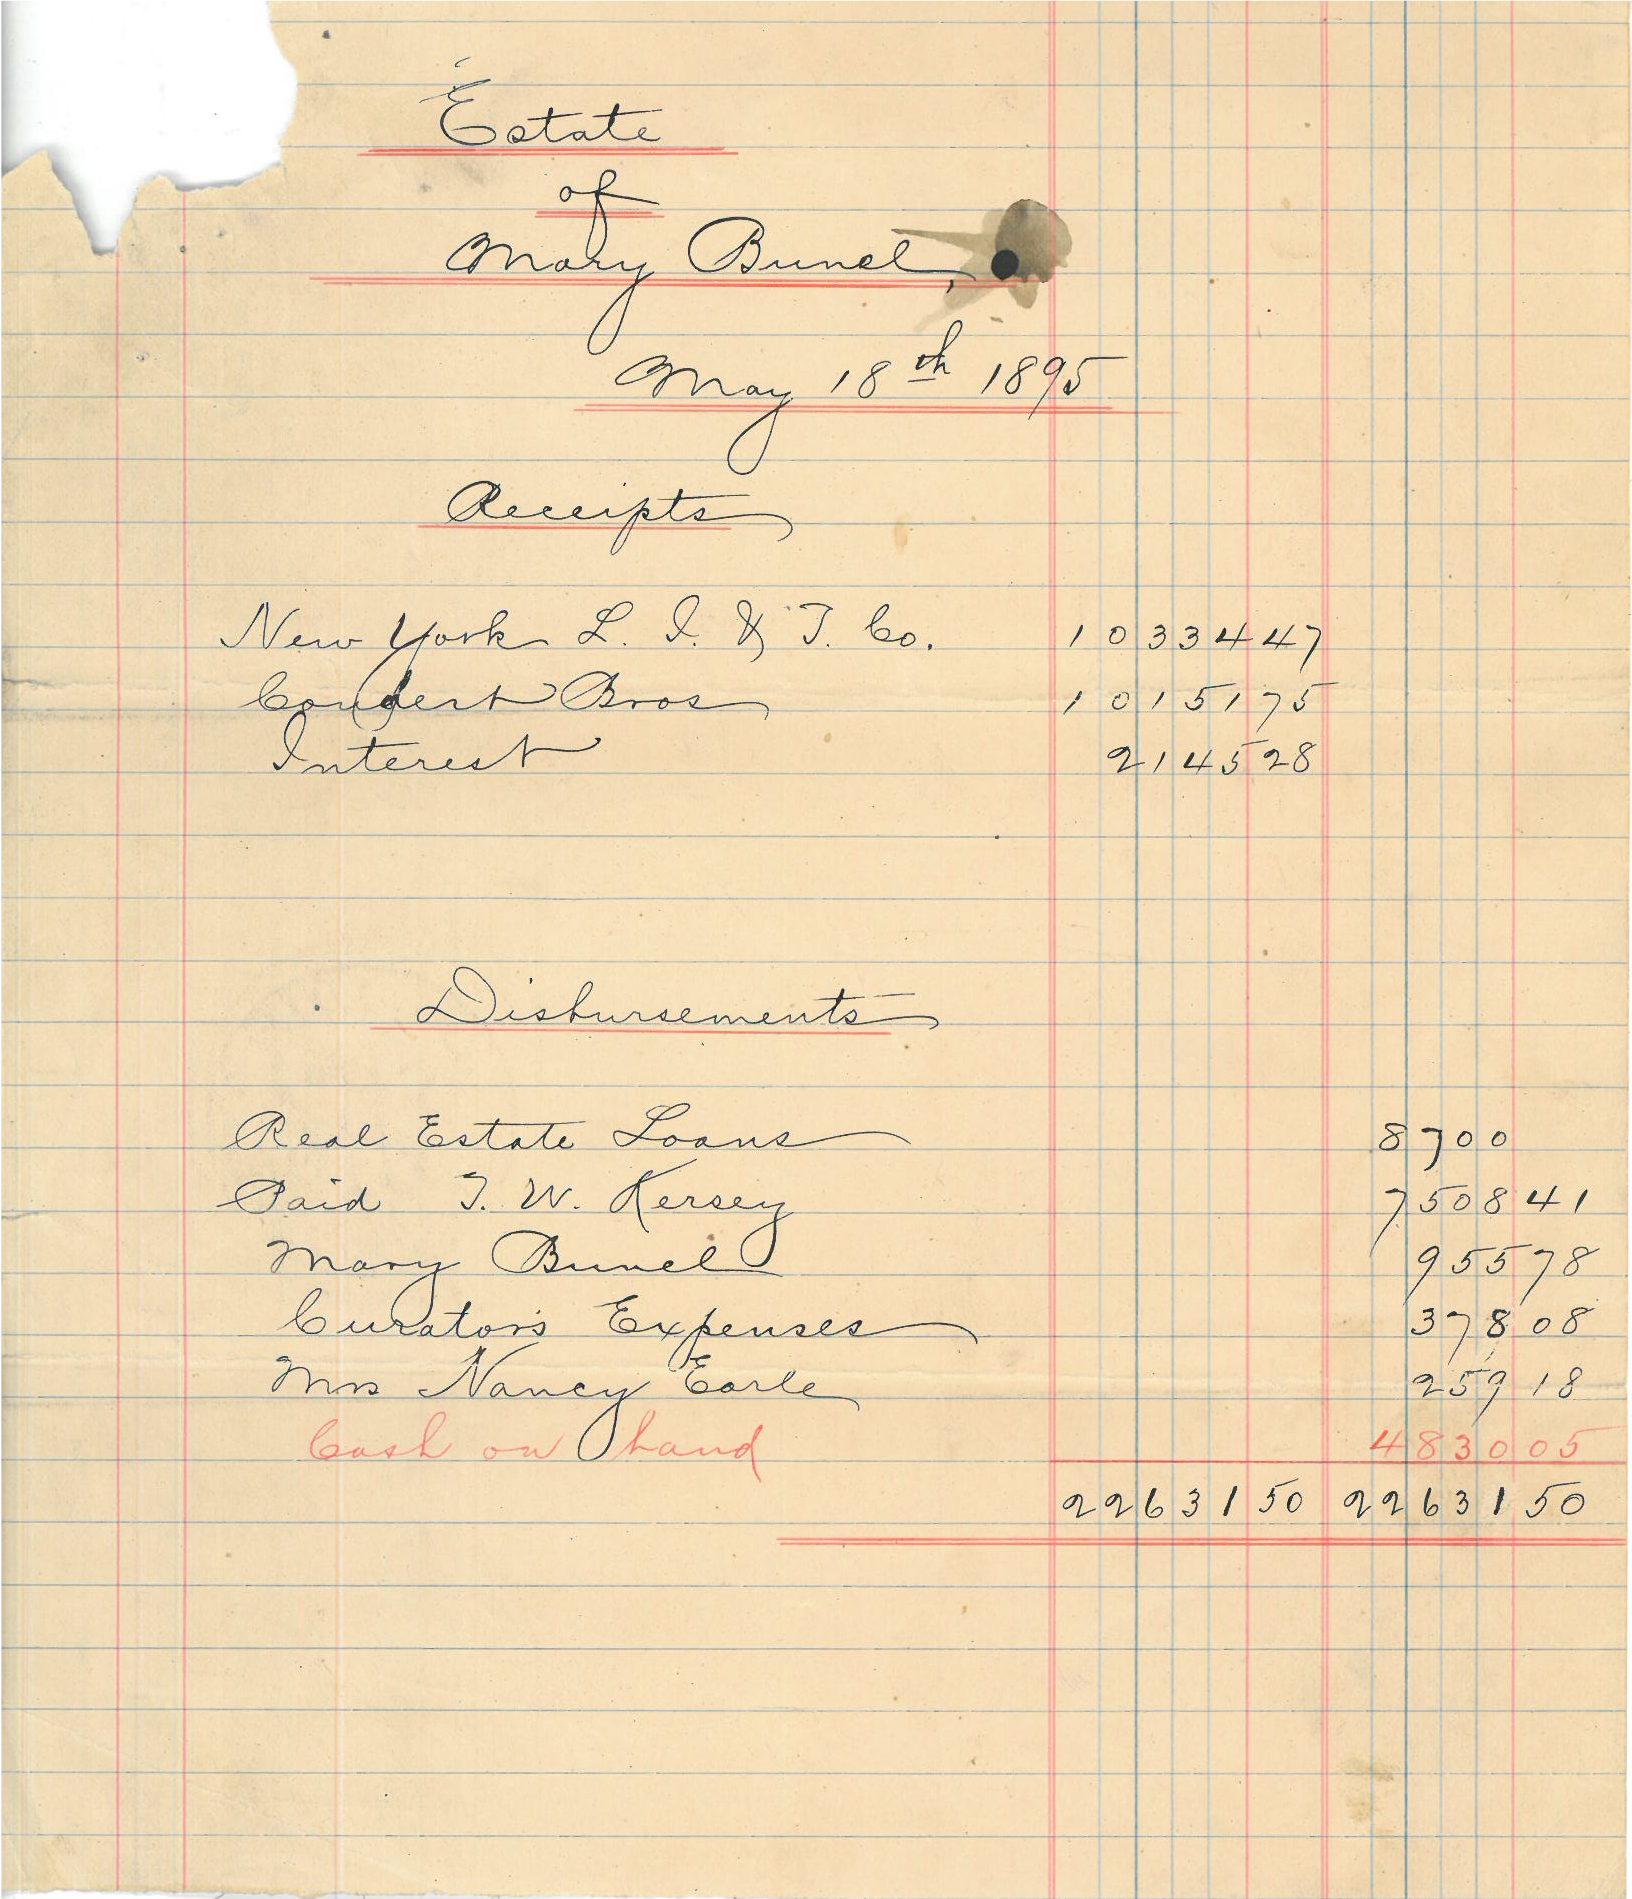 Estate
of
Mary Bunel,
May 18th 1895
Receipts
New York L. I. & T. Co. 10334 47
Coudert Bros 10151 75
Interest 2145 28
Disbursements
Real Estate Loans 8700
Paid T. W. Kersey 7508 41
Mary Bunel 955 78
Curator's Expenses 378 08
Mrs Nancy Earle 259 18
Cash on hand 4830 05
22631 50 22631 50